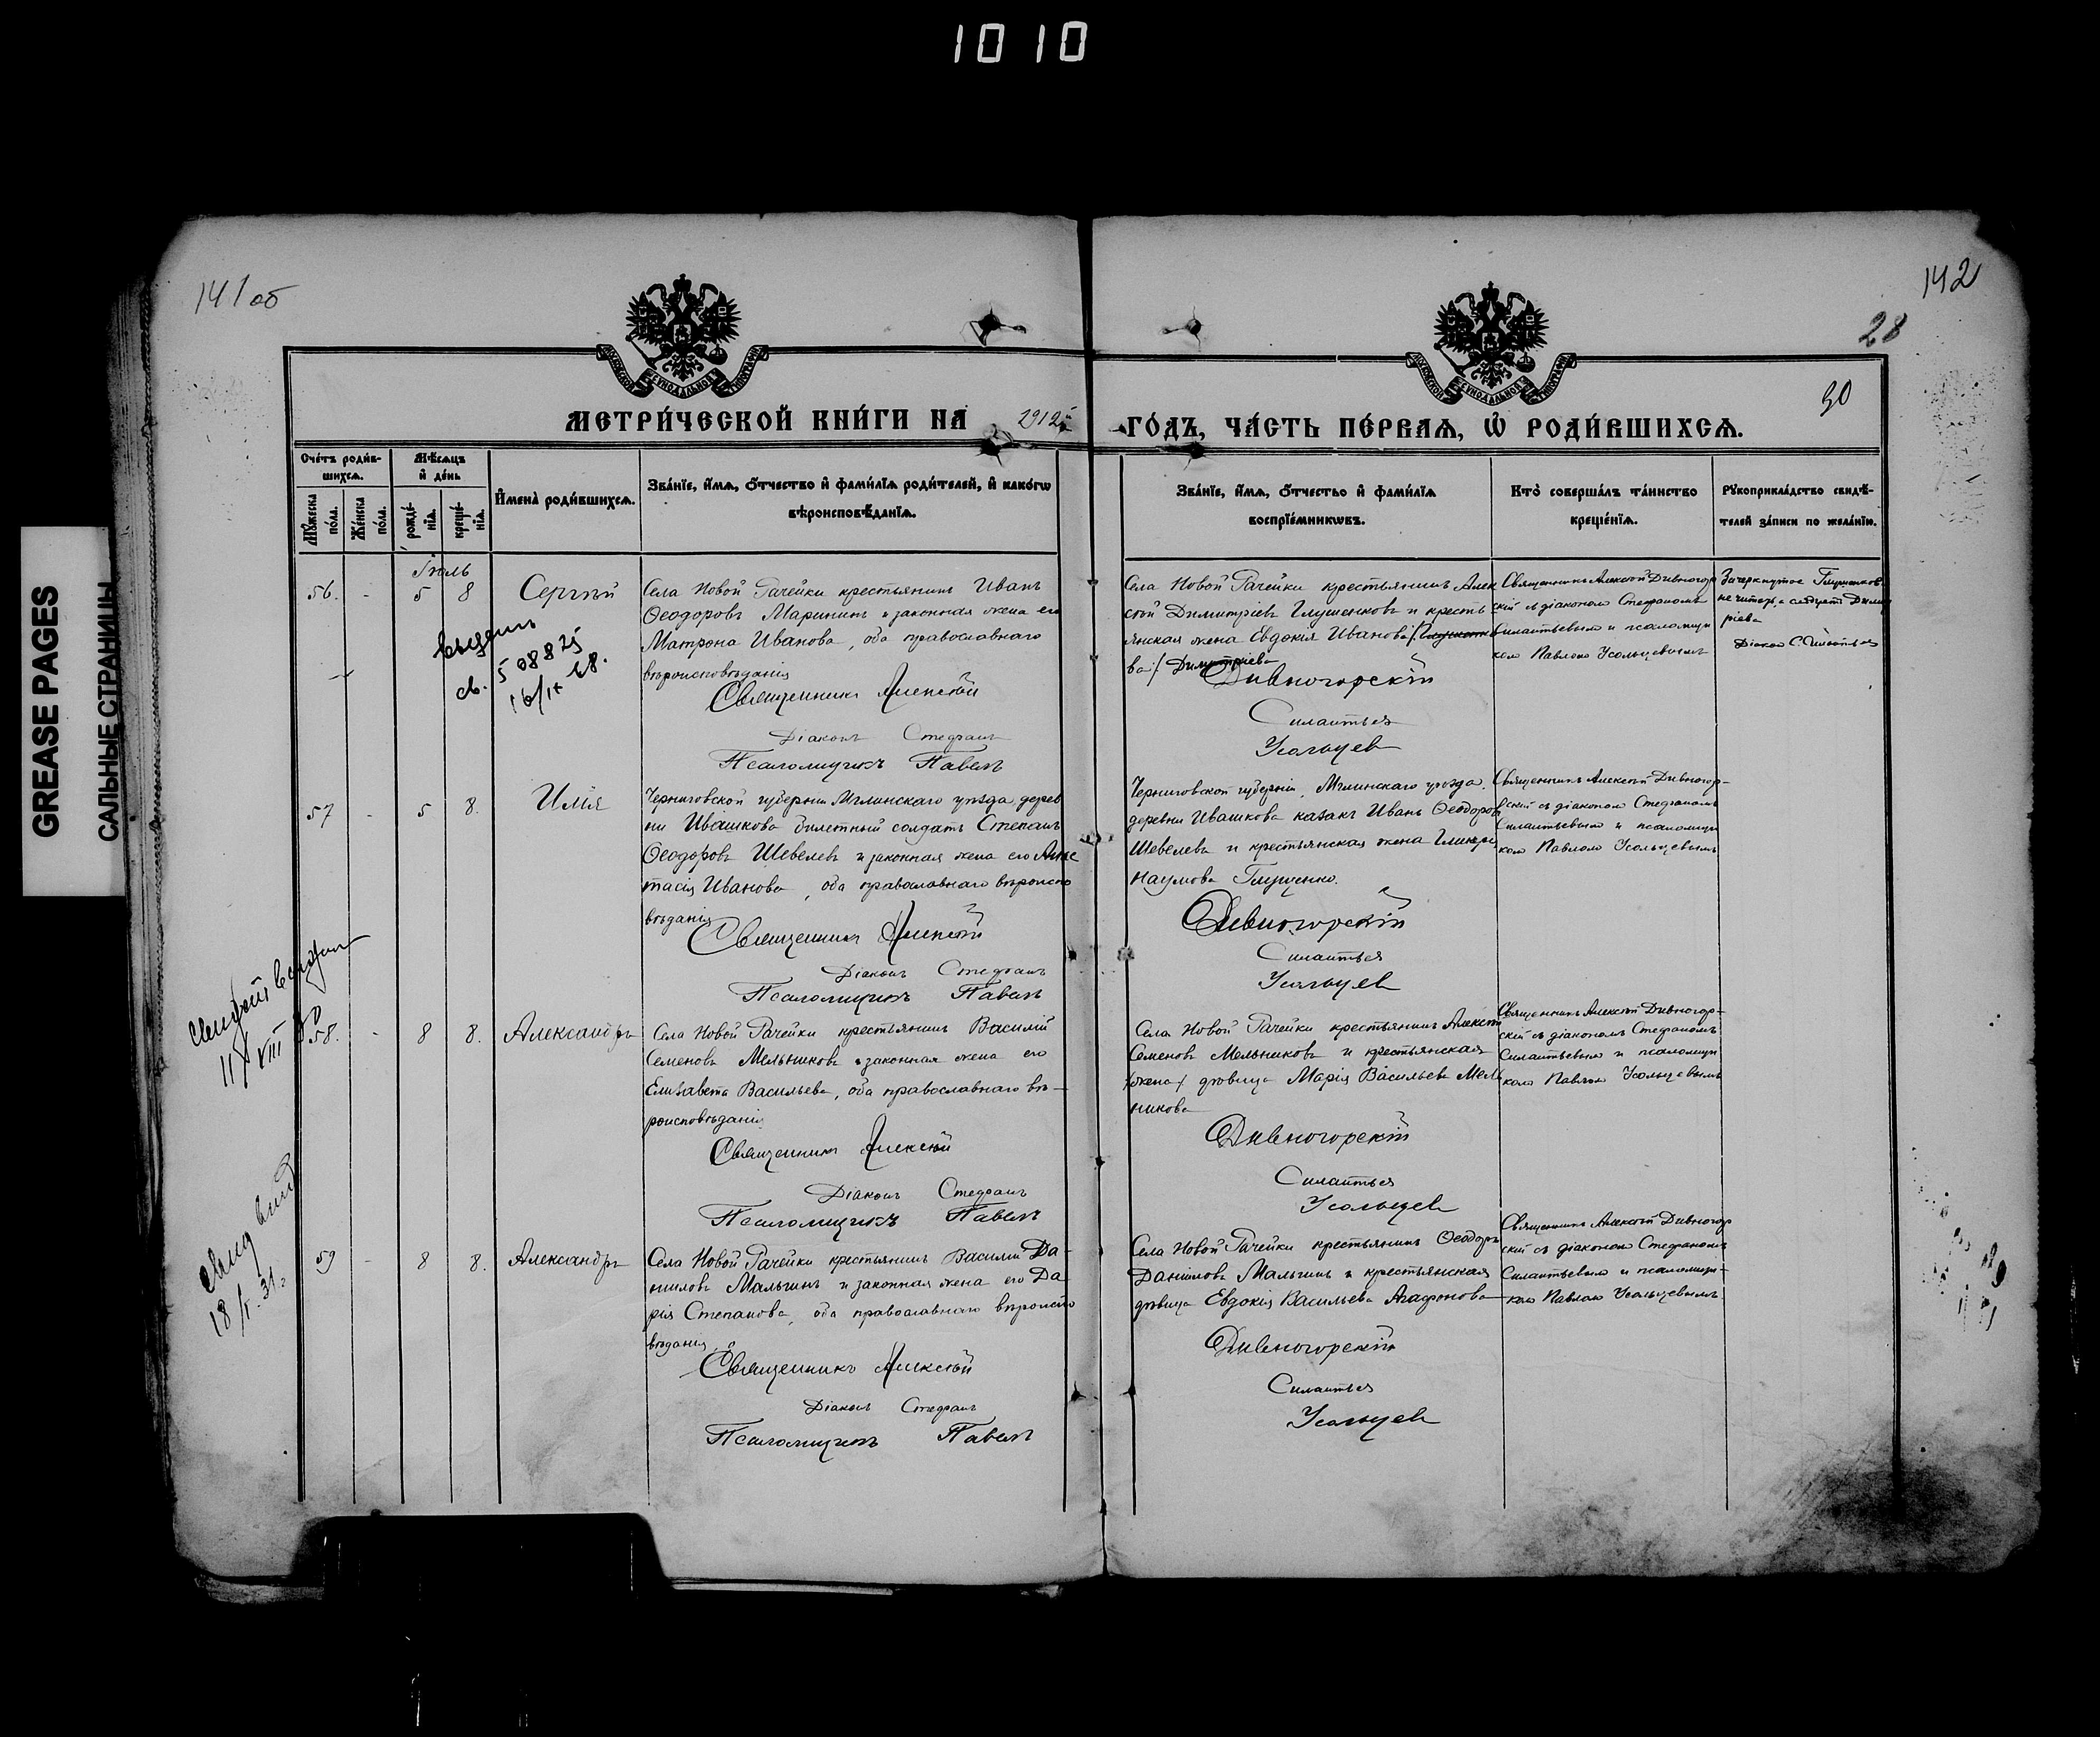 1010
GREASE PAGES
САЛЬНЫЕ СТРАНИЦЫ
141 об
142
28
30
МЕТРИ́ЧЕСКОЙ КНИ́ГИ НА 1912й ГО́ДЪ, ЧА́СТЬ ПЕ́РВАѦ, Ѡ РОДИ́ВШИХСѦ.
Сче́тъ роди́в-
шихсѧ.
Мꙋ́жеска по́ла.
Же́нска по́ла.
Мѣ́сѧцъ
и҆ де́нь
рожде́-
нїѧ.
креще́-
нїѧ.
И҆мена̀ роди́вшихсѧ.
Зва́нїе, и҆́мѧ, ѻ҆́тчество и҆ фами́лїѧ роди́телей, и҆ како́гѡ
вѣроисповѣ́данїѧ.
Зва́нїе, и҆́мѧ, ѻ҆́тчество и҆ фами́лїѧ
воспрїе́мникѡвъ.
Кто̀ соверша́лъ та́инство
креще́нїѧ.
Рꙋкоприкла́дство свидѣ́-
телей за́писи по жела́нїю.
Іюль
56. - 5 8 Сергѣй
Села Новой Рачейки крестьянинъ Иванъ
Ѳеодоровъ Маринин и законная жена его
Матрона Иванова, оба православнаго
вѣроисповѣданія
Священникъ Алексѣй
Діаконъ Стефанъ
Псаломщикъ Павелъ
Села Новой Рачейки крестьянинъ Алек
сѣй Димитріевъ Глушенковъ и кресть-
янская жена Евдокія Иванова /Глушенко
ва/ Димитріева
Дивногорскій
Силантьев
Усольцев
Священникъ Алексѣй Дивногор
скій съ діакономъ Стефаномъ
Силантьевымъ и псаломщи
комъ Павломъ Усольцевымъ
Зачеркнутое Глушенков
не читать, а следует Дими
ріева
Діакон С. Силантьев
выдан
св. 508825
16/IX 68.
57 - 5 8. Илія
Черниговской губерніи Мглинскаго уѣзда, дерев
ни Ивашкова билетный солдатъ Степанъ
Ѳеодоровъ Шевелевъ и законная жена его Анас
тасія Иванова, оба православнаго вѣроиспо
вѣданія
Священникъ Алексѣй
Діаконъ Стефанъ
Псаломщикъ Павелъ
Черниговской губерніи, Мглинскаго уѣзда,
деревни Ивашкова казакъ Иванъ Ѳеодоров
Шевелевъ и крестьянская жена Гликері
Наумова Глущенко.
Дивногорскій
Силантьев
Усольцев
Священникъ Алексѣй Дивногор-
скій съ діакономъ Стефаномъ
Силантьевымъ и псаломщи
комъ Павломъ Усольцевымъ
11/VIII 30
58. - 8 8. Александръ
Села Новой Рачейки крестьянинъ Василій
Семеновъ Мельниковъ и законная жена его
Елизавета Васильева, оба православнаго вѣ-
роисповѣданія
Священникъ Алексѣй
Діаконъ Стефанъ
Псаломщикъ Павелъ
Села Новой Рачейки крестьянинъ Алексѣй
Семеновъ Мельниковъ и крестьянская
/жена/ дѣвица Марія Васильева Мель
никова
Дивногорскій
Силантьев
Усольцев
Священникъ Алексѣй Дивногор-
скій съ діакономъ Стефаномъ
Силантьевымъ и псаломщи
комъ Павломъ Усольцевымъ
18/V. 31.
59 - 8 8. Александръ
Села Новой Рачейки крестьянинъ Василій Да-
ниловъ Мальгинъ и законная жена его Да
рія Степанова, оба православнаго вѣроиспо
вѣданія
Священникъ Алексѣй
Діаконъ Стефанъ
Псаломщикъ Павелъ
Села Новой Рачейки крестьянинъ Ѳеодоръ
Даниловъ Мальгинъ и крестьянская
дѣвица Евдокія Васильева Агафонова
Дивногорскій
Силантьев
Усольцев
Священникъ Алексѣй Дивногор
скій съ діакономъ Стефаномъ
Силантьевымъ и псаломщи-
комъ Павломъ Усольцевымъ